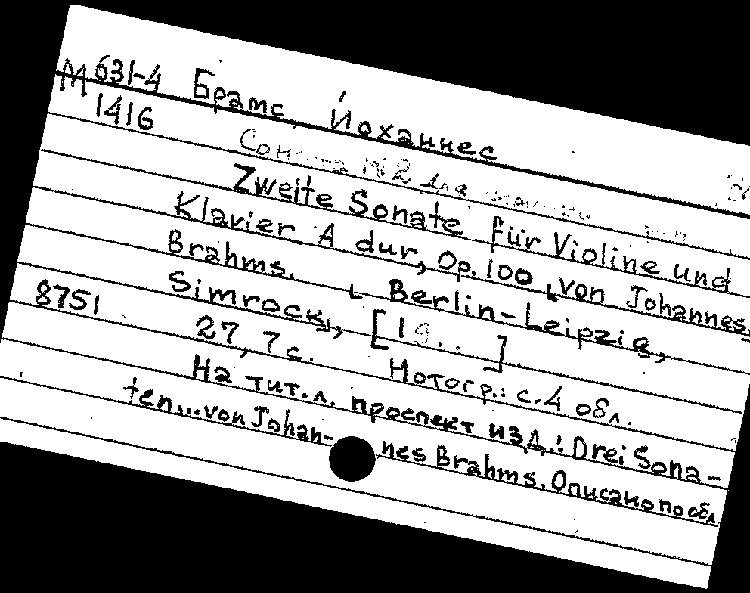 М 631-4 Брамс, Йоханнес
1416
Соната №2 для
Zweite Sonate für Violine und
Klavier A dur, Op. 100 von Johannes
Brahms. Berlin-Leipzig,
Simrock, [19..]
8751 27, 7 с. Нотогр.: с. 4 обл.
На тит. л. проспект изд.: Drei Sona-
ten... von Johan-nes Brahms. Описано по обл.